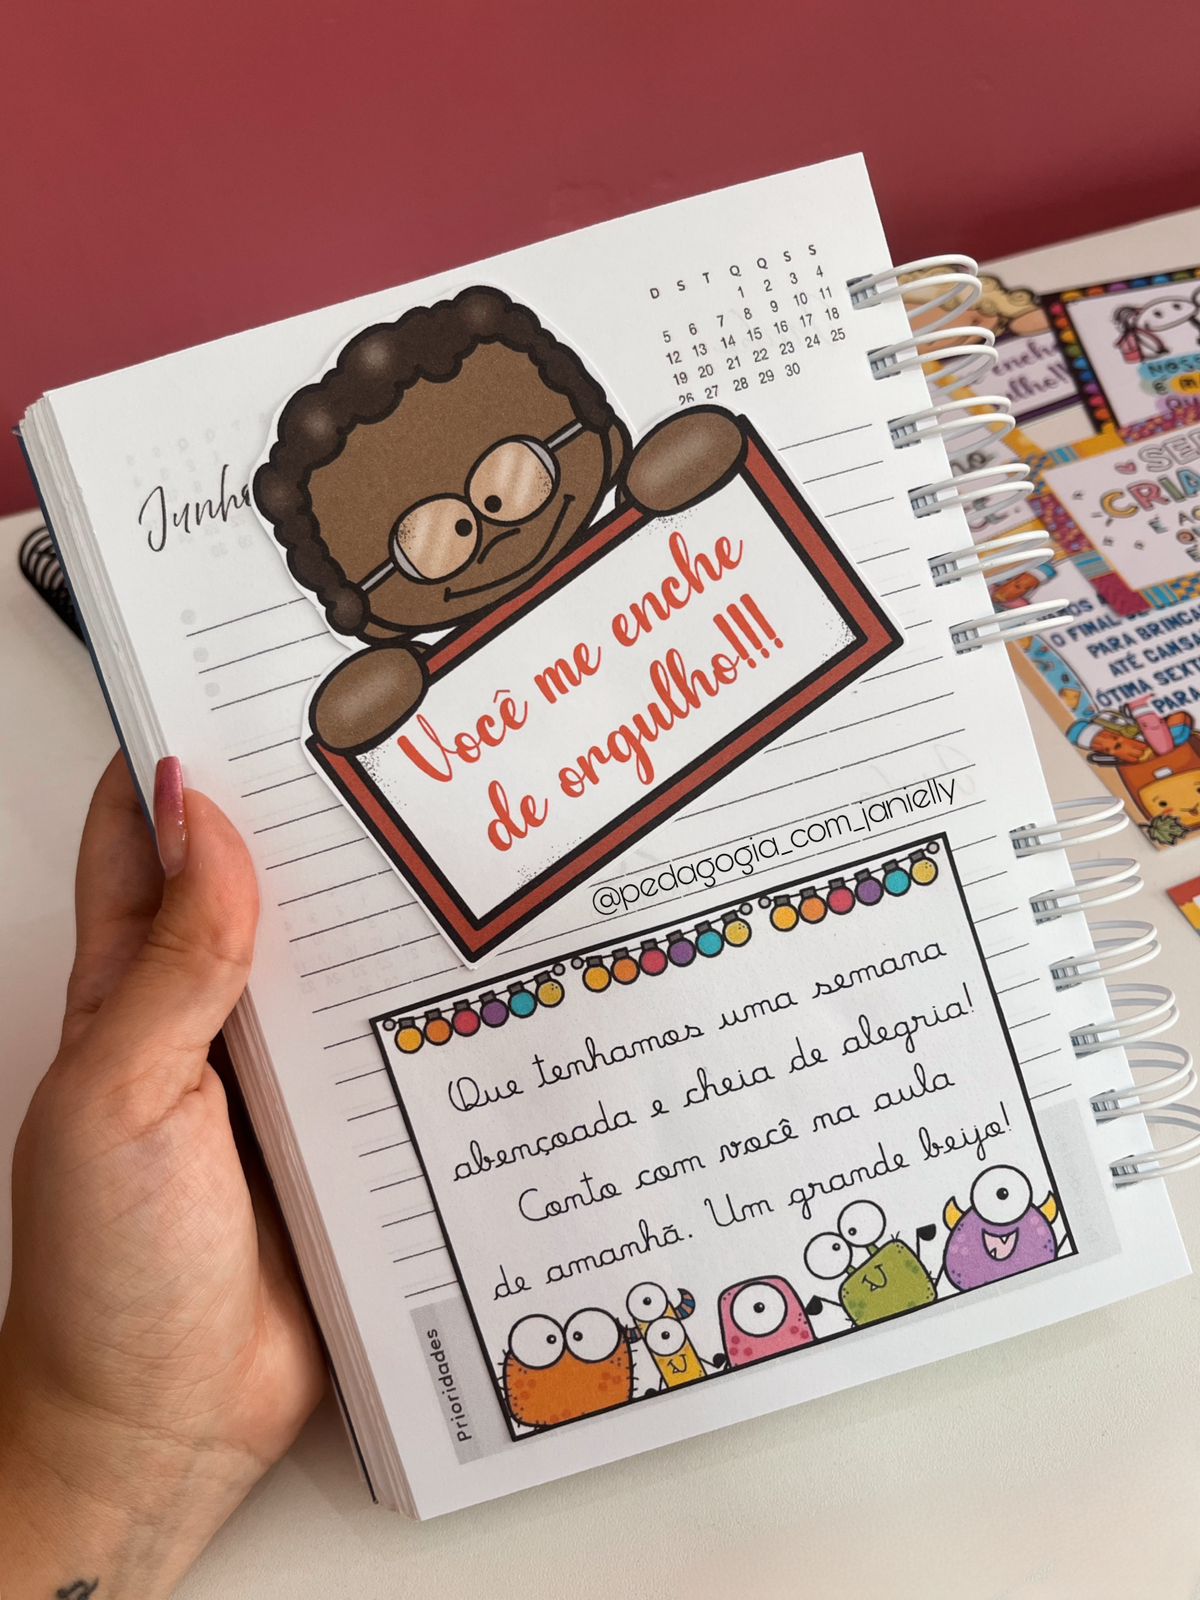 D S T Q Q S S
1 2 3 4
5 6 7 8 9 10 11
12 13 14 15 16 17 18
19 20 21 22 23 24 25
26 27 28 29 30
Junho
Você me enche
de orgulho!!!
@pedagogia_com_janielly
Que tenhamos uma semana
abençoada e cheia de alegria!
Conto com você na aula
de amanhã. Um grande beijo!
Prioridades
O FINAL
PARA BRINCA
ATÉ CANSA
ÓTIMA SEXT
PARA